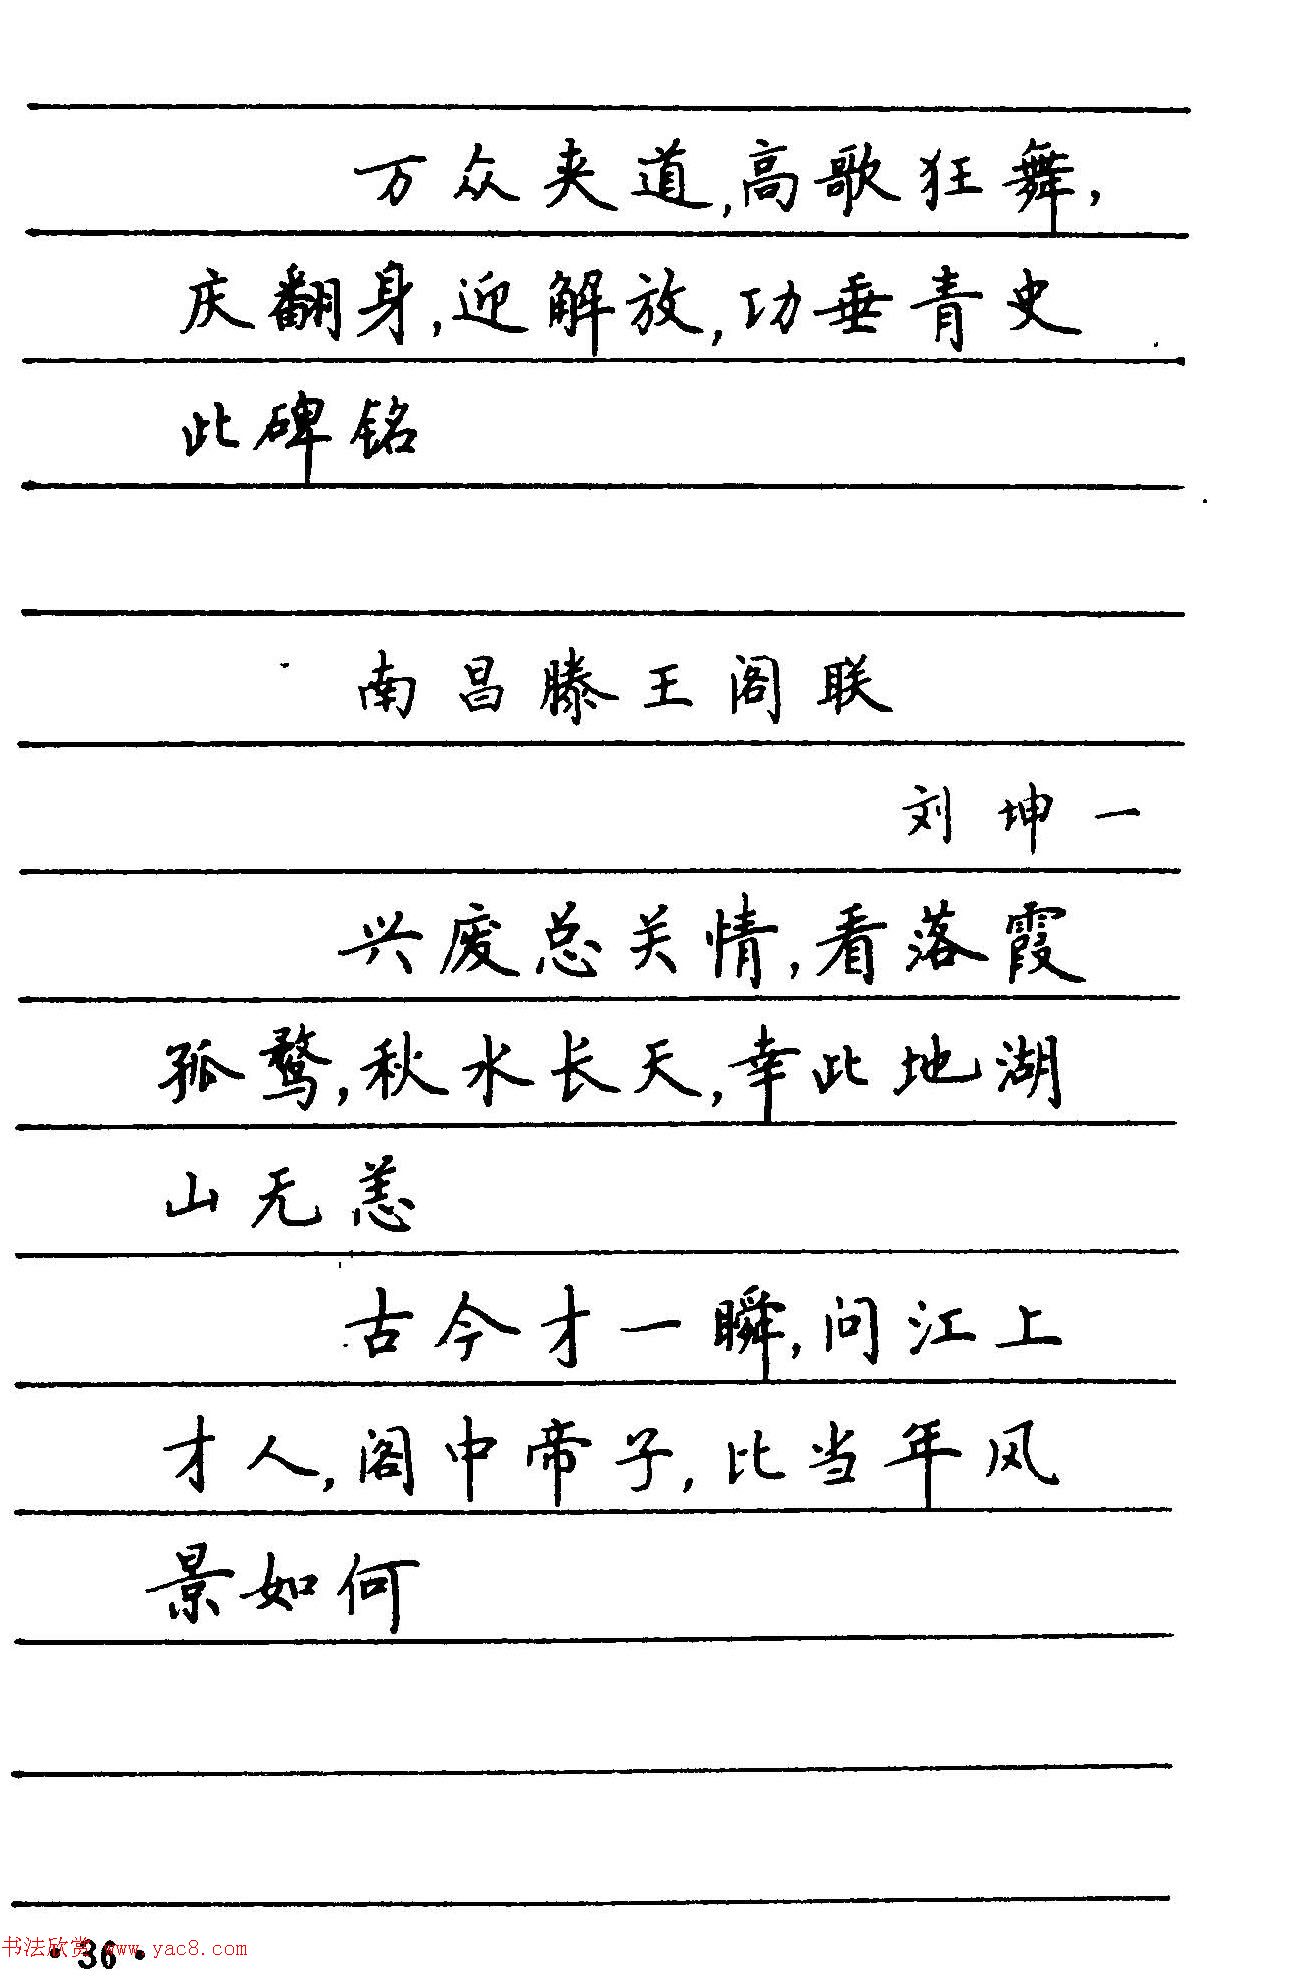 万众夹道,高歌狂舞,
庆翻身,迎解放,功垂青史
此碑铭
南昌滕王阁联
刘坤一
兴废总关情,看落霞
孤鹜,秋水长天,幸此地湖
山无恙
古今才一瞬,问江上
才人,阁中帝子,比当年风
景如何
书法欣赏 www.yac8.com
·36·